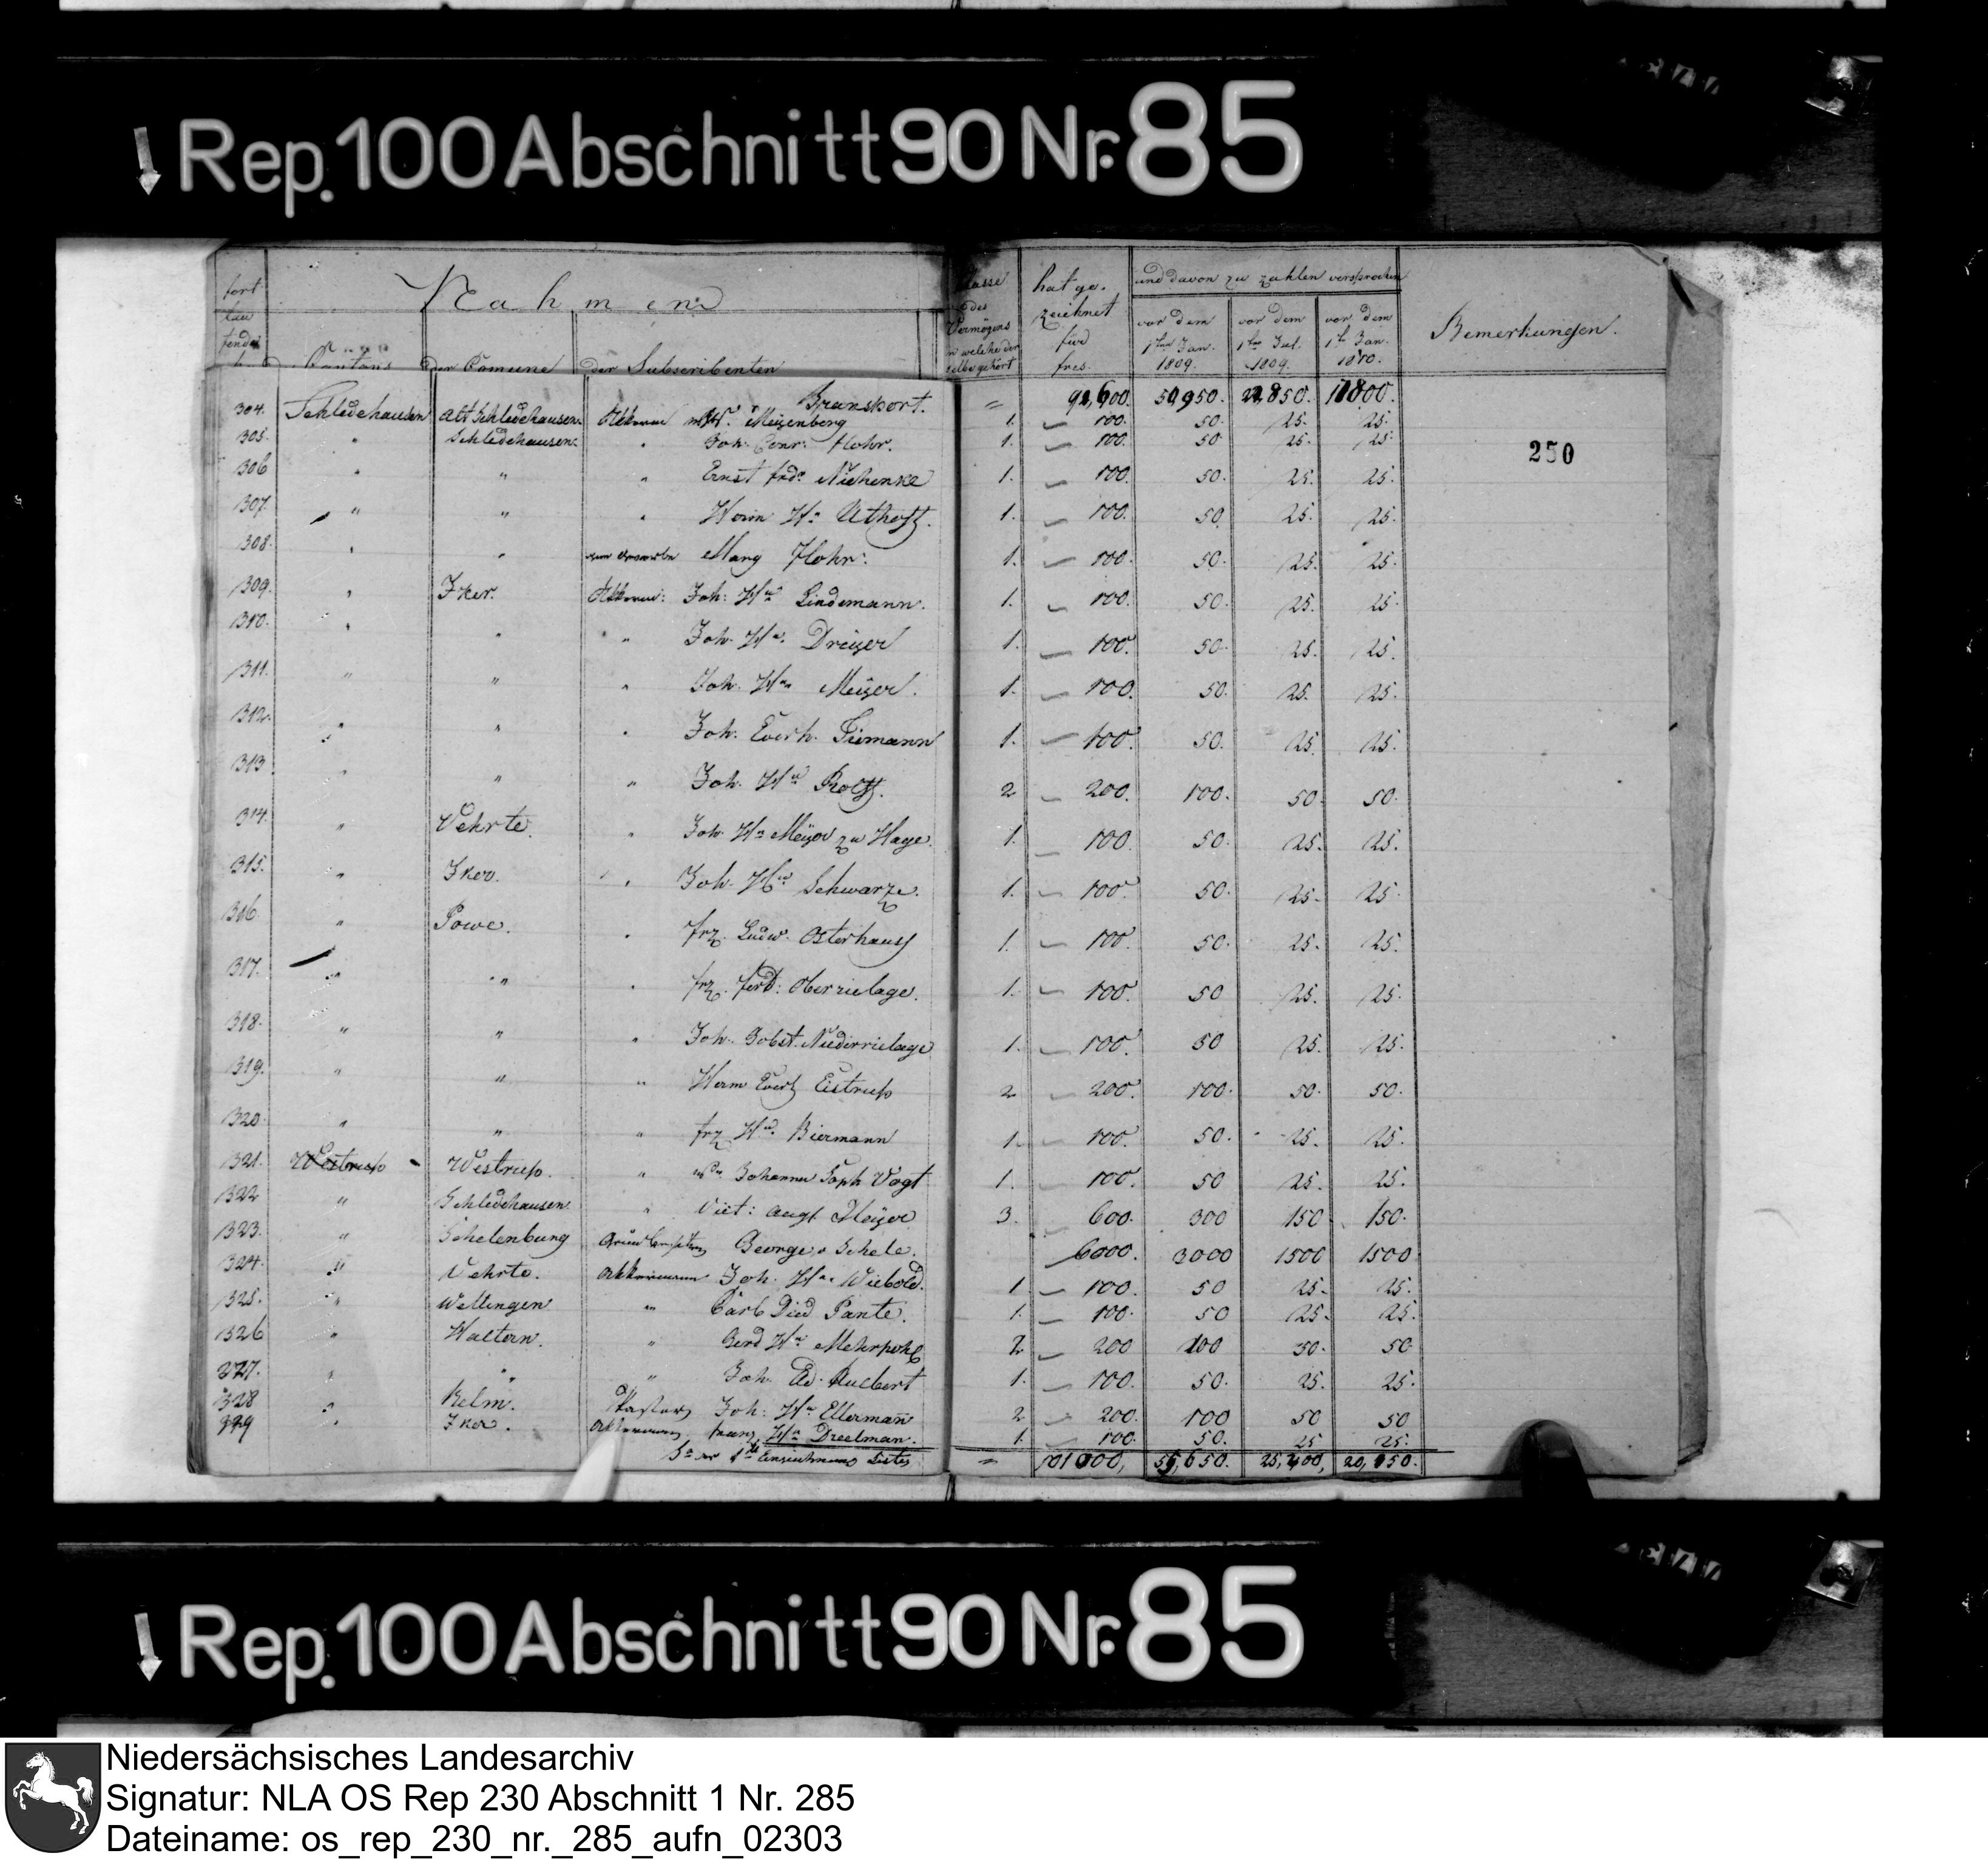 Rep. 100 Abschnitt 90 Nr. 85
fort
lau
fende
Nahmen
des Cantons
der Comune
der Subscribenten
Classe
des
Vermögens
in welche der
selbe gehört
hat ge-
zeichnet
für
frcs.
und davon zu zahlen versprochen
vor dem
1ten Jan.
1809.
vor dem
1ten Jul.
1809.
vor dem
1t. Jan.
1810.
Bemerkungen.
250
Transport. 92,600. 22,850.
304. Schledehausen Alt Schledehausen Meÿenberg 1. 100. 50. 25. 25.
305. " Schledehausen " Joh: Conr: Flohr. 1. 100. 50 25. 25
306 " " " Ernst frdr Niehenke 1. 100. 50. 25. 25.
307. " " " Herm Hn Uthoff. 1. 100. 50. 25. 25.
308. " " Marg Flohr: 1. 100. 50. 25. 25.
309. " Jker. Joh: Hn Lindemann. 1. 100. 50. 25. 25.
310. " " " Joh. Hn. Dreÿer 1. 100. 50. 25. 25.
311. " " " Joh. Hn Meÿer. 1. 100. 50. 25. 25.
312. " " " Joh. Everh. Tiemann 1. 100. 50. 25. 25.
313. " " " Joh. Hn Rolff. 2 200. 100. 50. 50.
314. " Vehrte. " Joh. Hn Meÿer zu Hage. 1. 100. 50. 25. 25.
315. " Jker. " Joh. Hn Schwarze. 1. 100. 50. 25. 25.
316. " Powe. " frz. Ludw. Osterhaus 1. 100. 50. 25. 25.
317. " " " frz. ferd: Oberrielage. 1. 100. 50 25. 25.
318. " " " Joh. Jobst. Niederrielage 1. 100. 50 25. 25.
319. " " " Herm Evert Eistrup 2 200. 100. 50. 50.
320. " " " frz Hn. Biermann 1. 100. 50. 25. 25.
321. Westrup Westrup. " Johanna Soph Vogt 1. 100. 50 25. 25.
322 " Schledehausen " Viet: Aug. Meÿer 3. 600. 300 150 150.
323. " Schelenburg George v Schele. 6000. 3000 1500 1500
324. " Vehrte. Joh. Hn. Wiebold. 1. 100. 50 25. 25.
325. " Wellingen " Carl Died Pante. 1. 100. 50 25. 25.
326 " Haltern. " Gerd Hn Mehrpohl 2 200 100 50. 50
327. " " " Joh. Ed. 1. 100. 50. 25. 25.
328 " Kelm. Pastor Joh: Hn Ellermann 2 200. 100 50 50
329 " Jker. franz Hn Dreelman. 1. 100. 50. 25 25.
Einzeichnungs Liste
Rep. 100 Abschnitt 90 Nr. 85
Niedersächsisches Landesarchiv
Signatur: NLA OS Rep 230 Abschnitt 1 Nr. 285
Dateiname: os_rep_230_nr._285_aufn_02303